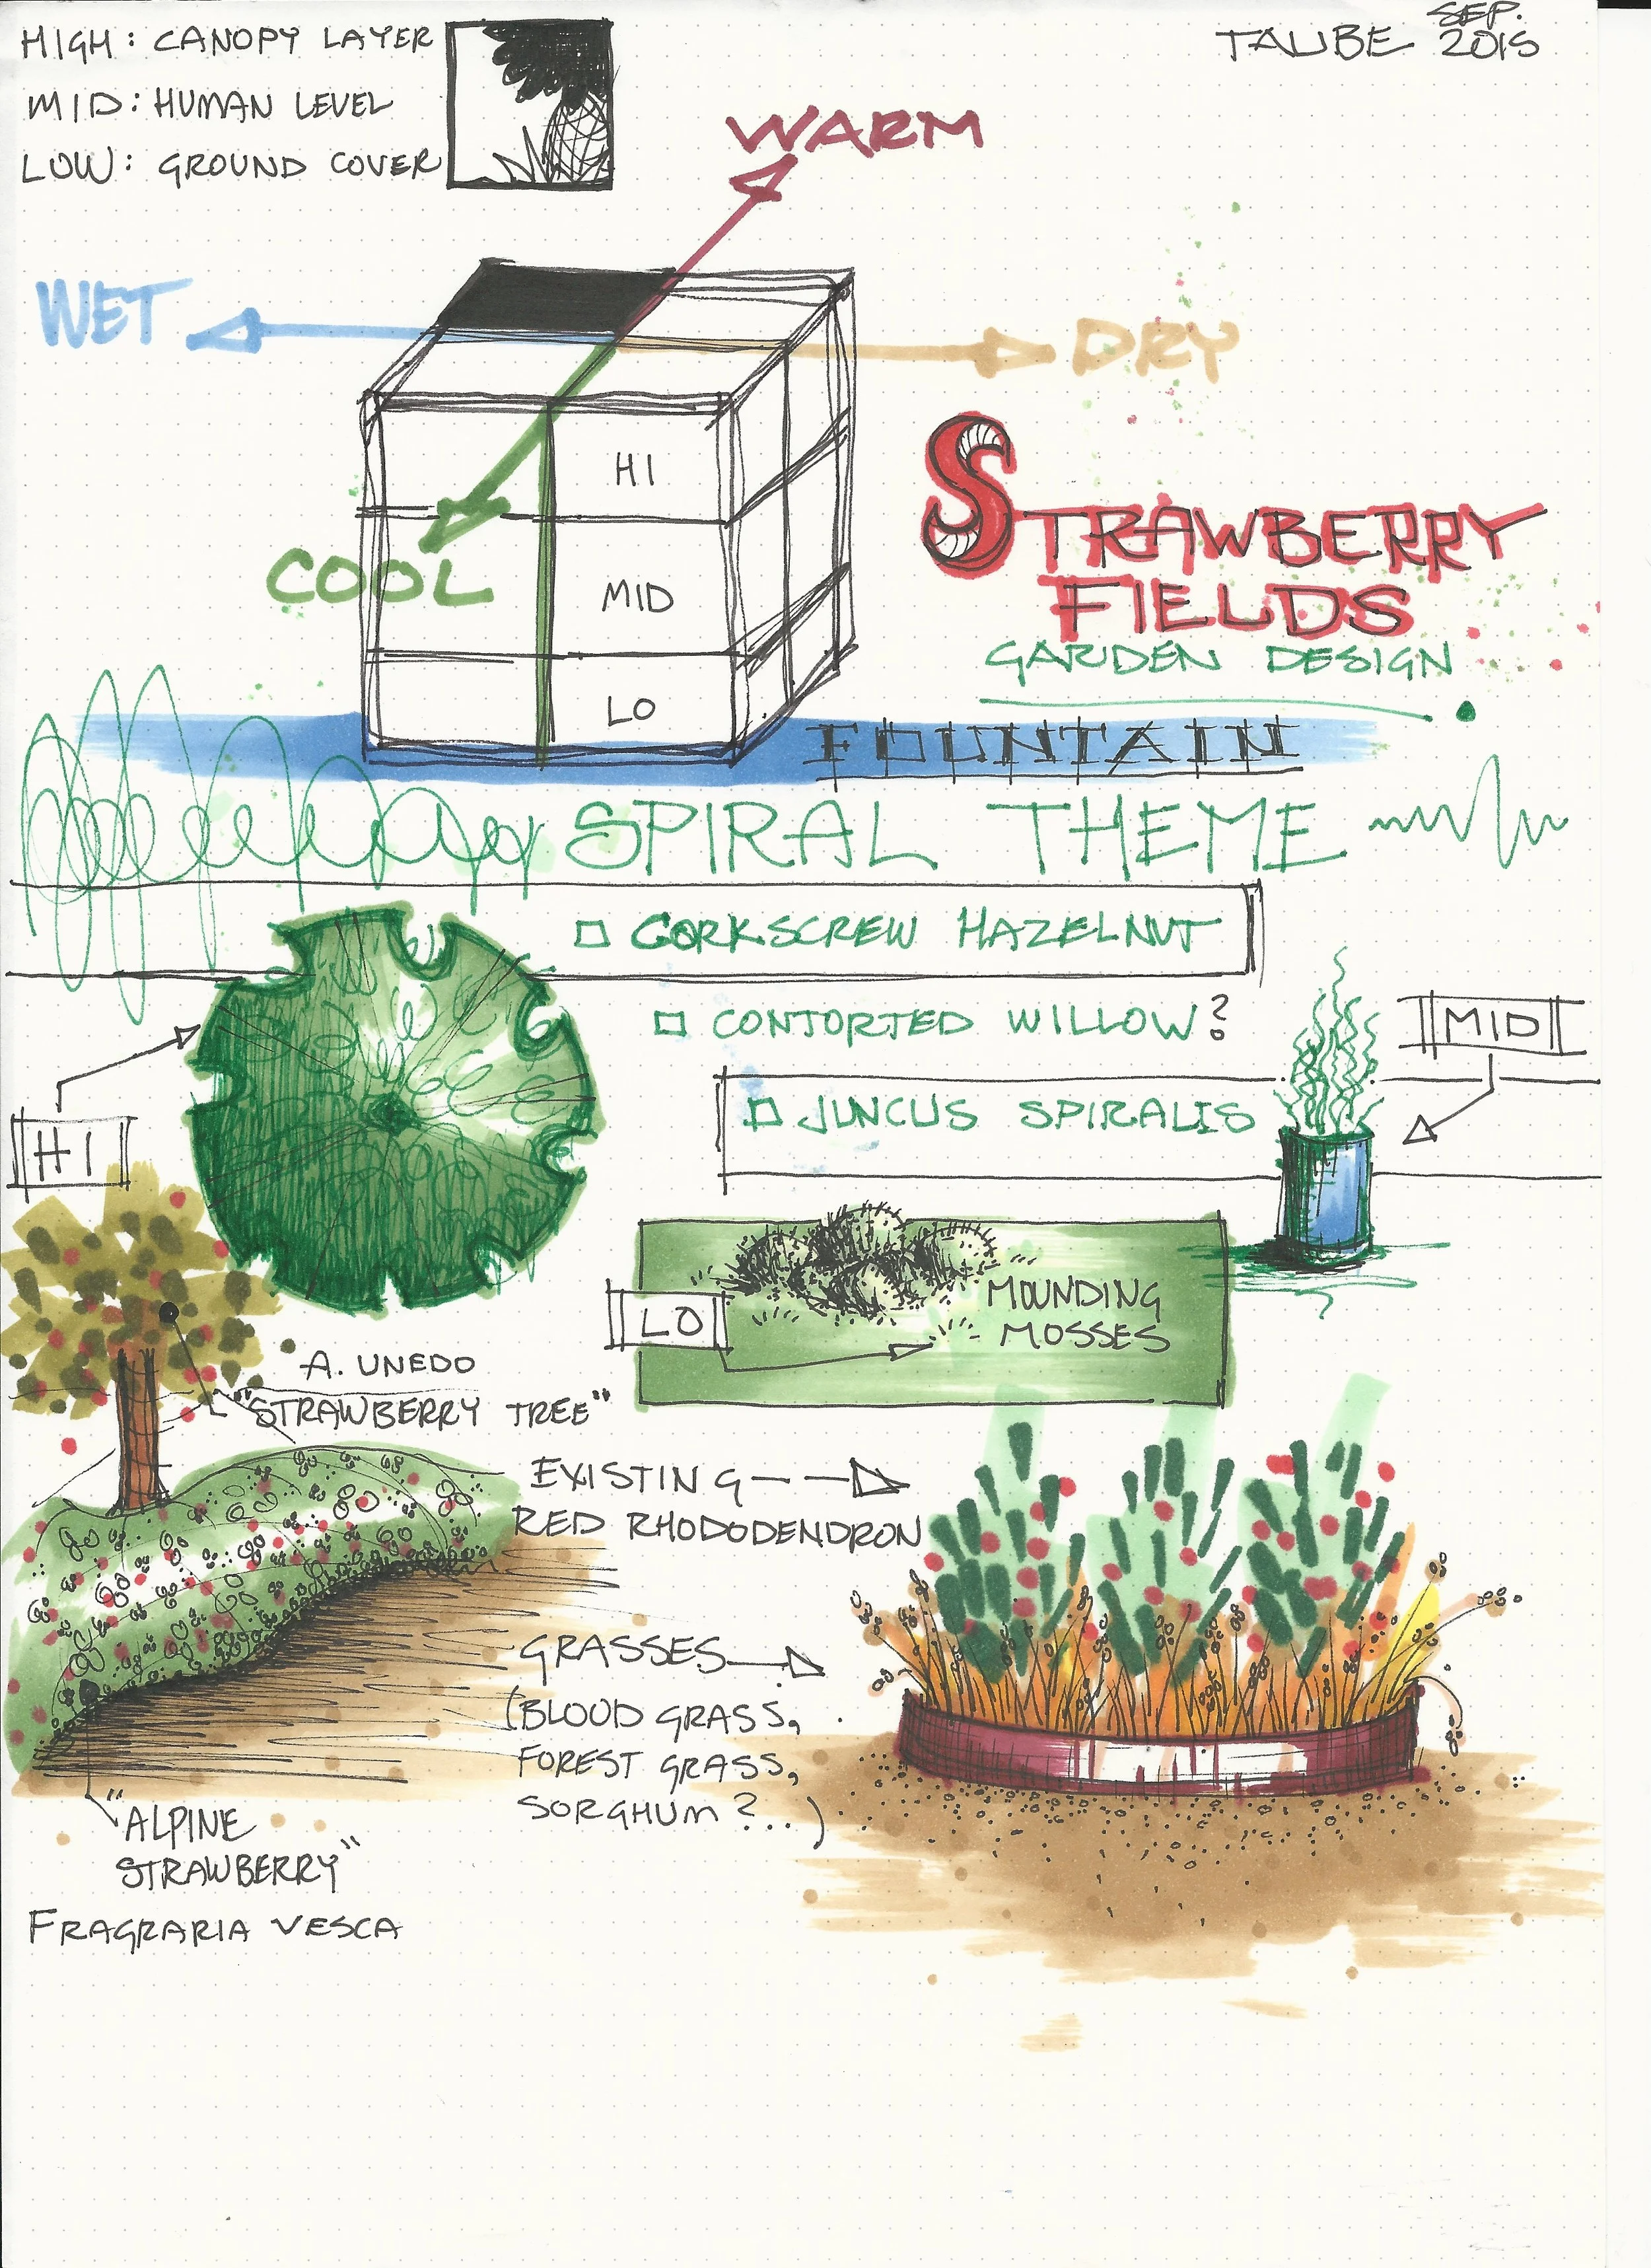 HIGH: CANOPY LAYER
MID: HUMAN LEVEL
LOW: GROUND COVER
TAUBE SEP. 2015
WARM
WET
DRY
COOL
HI
MID
LO
STRAWBERRY
FIELDS
GARDEN DESIGN
FOUNTAIN
SPIRAL THEME
CORKSCREW HAZELNUT
CONTORTED WILLOW?
MID
JUNCUS SPIRALIS
HI
LO
MOUNDING
MOSSES
A. UNEDO
"STRAWBERRY TREE"
EXISTING
RED RHODODENDRON
GRASSES
(BLOOD GRASS,
FOREST GRASS,
SORGHUM?...)
"ALPINE
STRAWBERRY"
FRAGRARIA VESCA